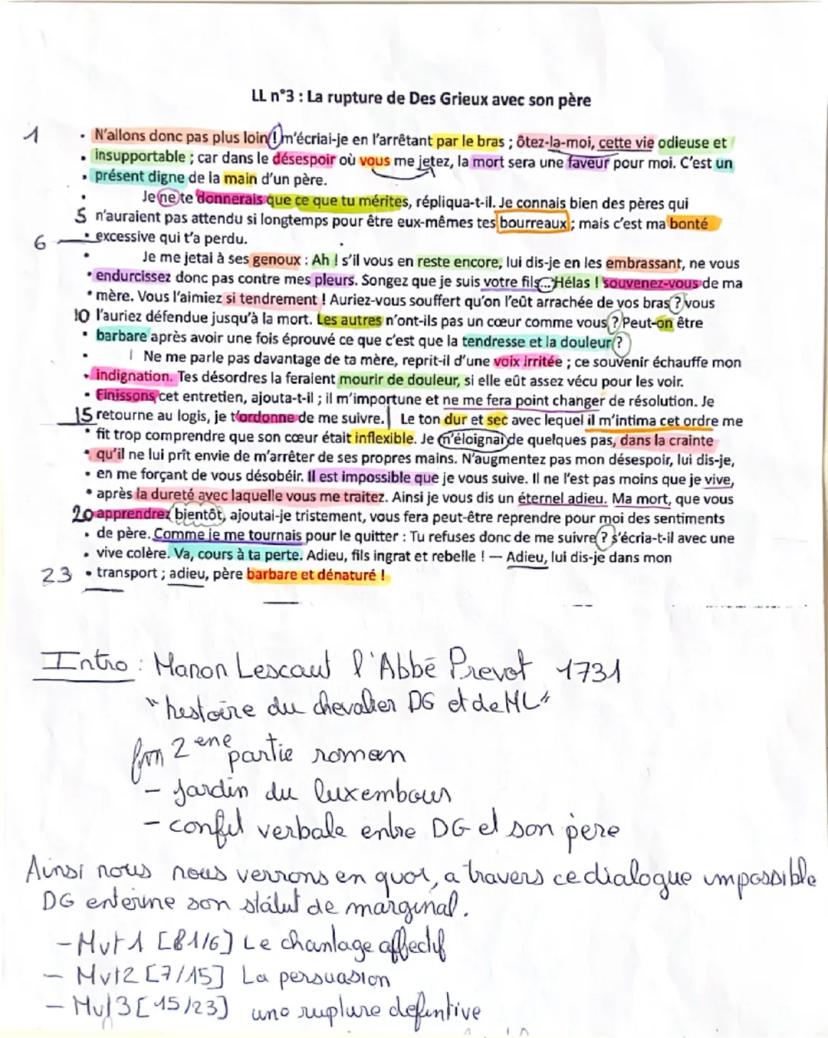 LL n°3 : La rupture de Des Grieux avec son père
1 N'allons donc pas plus loin ! m'écriai-je en l'arrêtant par le bras ; ôtez-la-moi, cette vie odieuse et
insupportable ; car dans le désespoir où vous me jetez, la mort sera une faveur pour moi. C'est un
présent digne de la main d'un père.
Je ne te donnerais que ce que tu mérites, répliqua-t-il. Je connais bien des pères qui
5 n'auraient pas attendu si longtemps pour être eux-mêmes tes bourreaux ; mais c'est ma bonté
6 excessive qui t'a perdu.
Je me jetai à ses genoux : Ah ! s'il vous en reste encore, lui dis-je en les embrassant, ne vous
endurcissez donc pas contre mes pleurs. Songez que je suis votre fils... Hélas ! souvenez-vous de ma
mère. Vous l'aimiez si tendrement ! Auriez-vous souffert qu'on l'eût arrachée de vos bras ? vous
10 l'auriez défendue jusqu'à la mort. Les autres n'ont-ils pas un cœur comme vous ? Peut-on être
barbare après avoir une fois éprouvé ce que c'est que la tendresse et la douleur ?
Ne me parle pas davantage de ta mère, reprit-il d'une voix irritée ; ce souvenir échauffe mon
indignation. Tes désordres la feraient mourir de douleur, si elle eût assez vécu pour les voir.
Finissons cet entretien, ajouta-t-il ; il m'importune et ne me fera point changer de résolution. Je
15 retourne au logis, je t'ordonne de me suivre. Le ton dur et sec avec lequel il m'intima cet ordre me
fit trop comprendre que son cœur était inflexible. Je m'éloignai de quelques pas, dans la crainte
qu'il ne lui prît envie de m'arrêter de ses propres mains. N'augmentez pas mon désespoir, lui dis-je,
en me forçant de vous désobéir. Il est impossible que je vous suive. Il ne l'est pas moins que je vive,
après la dureté avec laquelle vous me traitez. Ainsi je vous dis un éternel adieu. Ma mort, que vous
20 apprendrez bientôt, ajoutai-je tristement, vous fera peut-être reprendre pour moi des sentiments
de père. Comme je me tournais pour le quitter : Tu refuses donc de me suivre ? s'écria-t-il avec une
vive colère. Va, cours à ta perte. Adieu, fils ingrat et rebelle ! — Adieu, lui dis-je dans mon
23 transport ; adieu, père barbare et dénaturé !
Intro : Manon Lescaut l'Abbé Prevot 1731
"histoire du chevalier DG et de ML"
fin 2eme partie roman
- Jardin du luxembour
- conflit verbale entre DG et son père
Ainsi nous nous verrons en quoi, a travers ce dialogue impossible
DG enterine son statut de marginal.
- Mvt 1 [81/6] Le chantage affectif
- Mvt2 [7/15] La persuasion
- Mvt3 [15/23] une rupture definitive